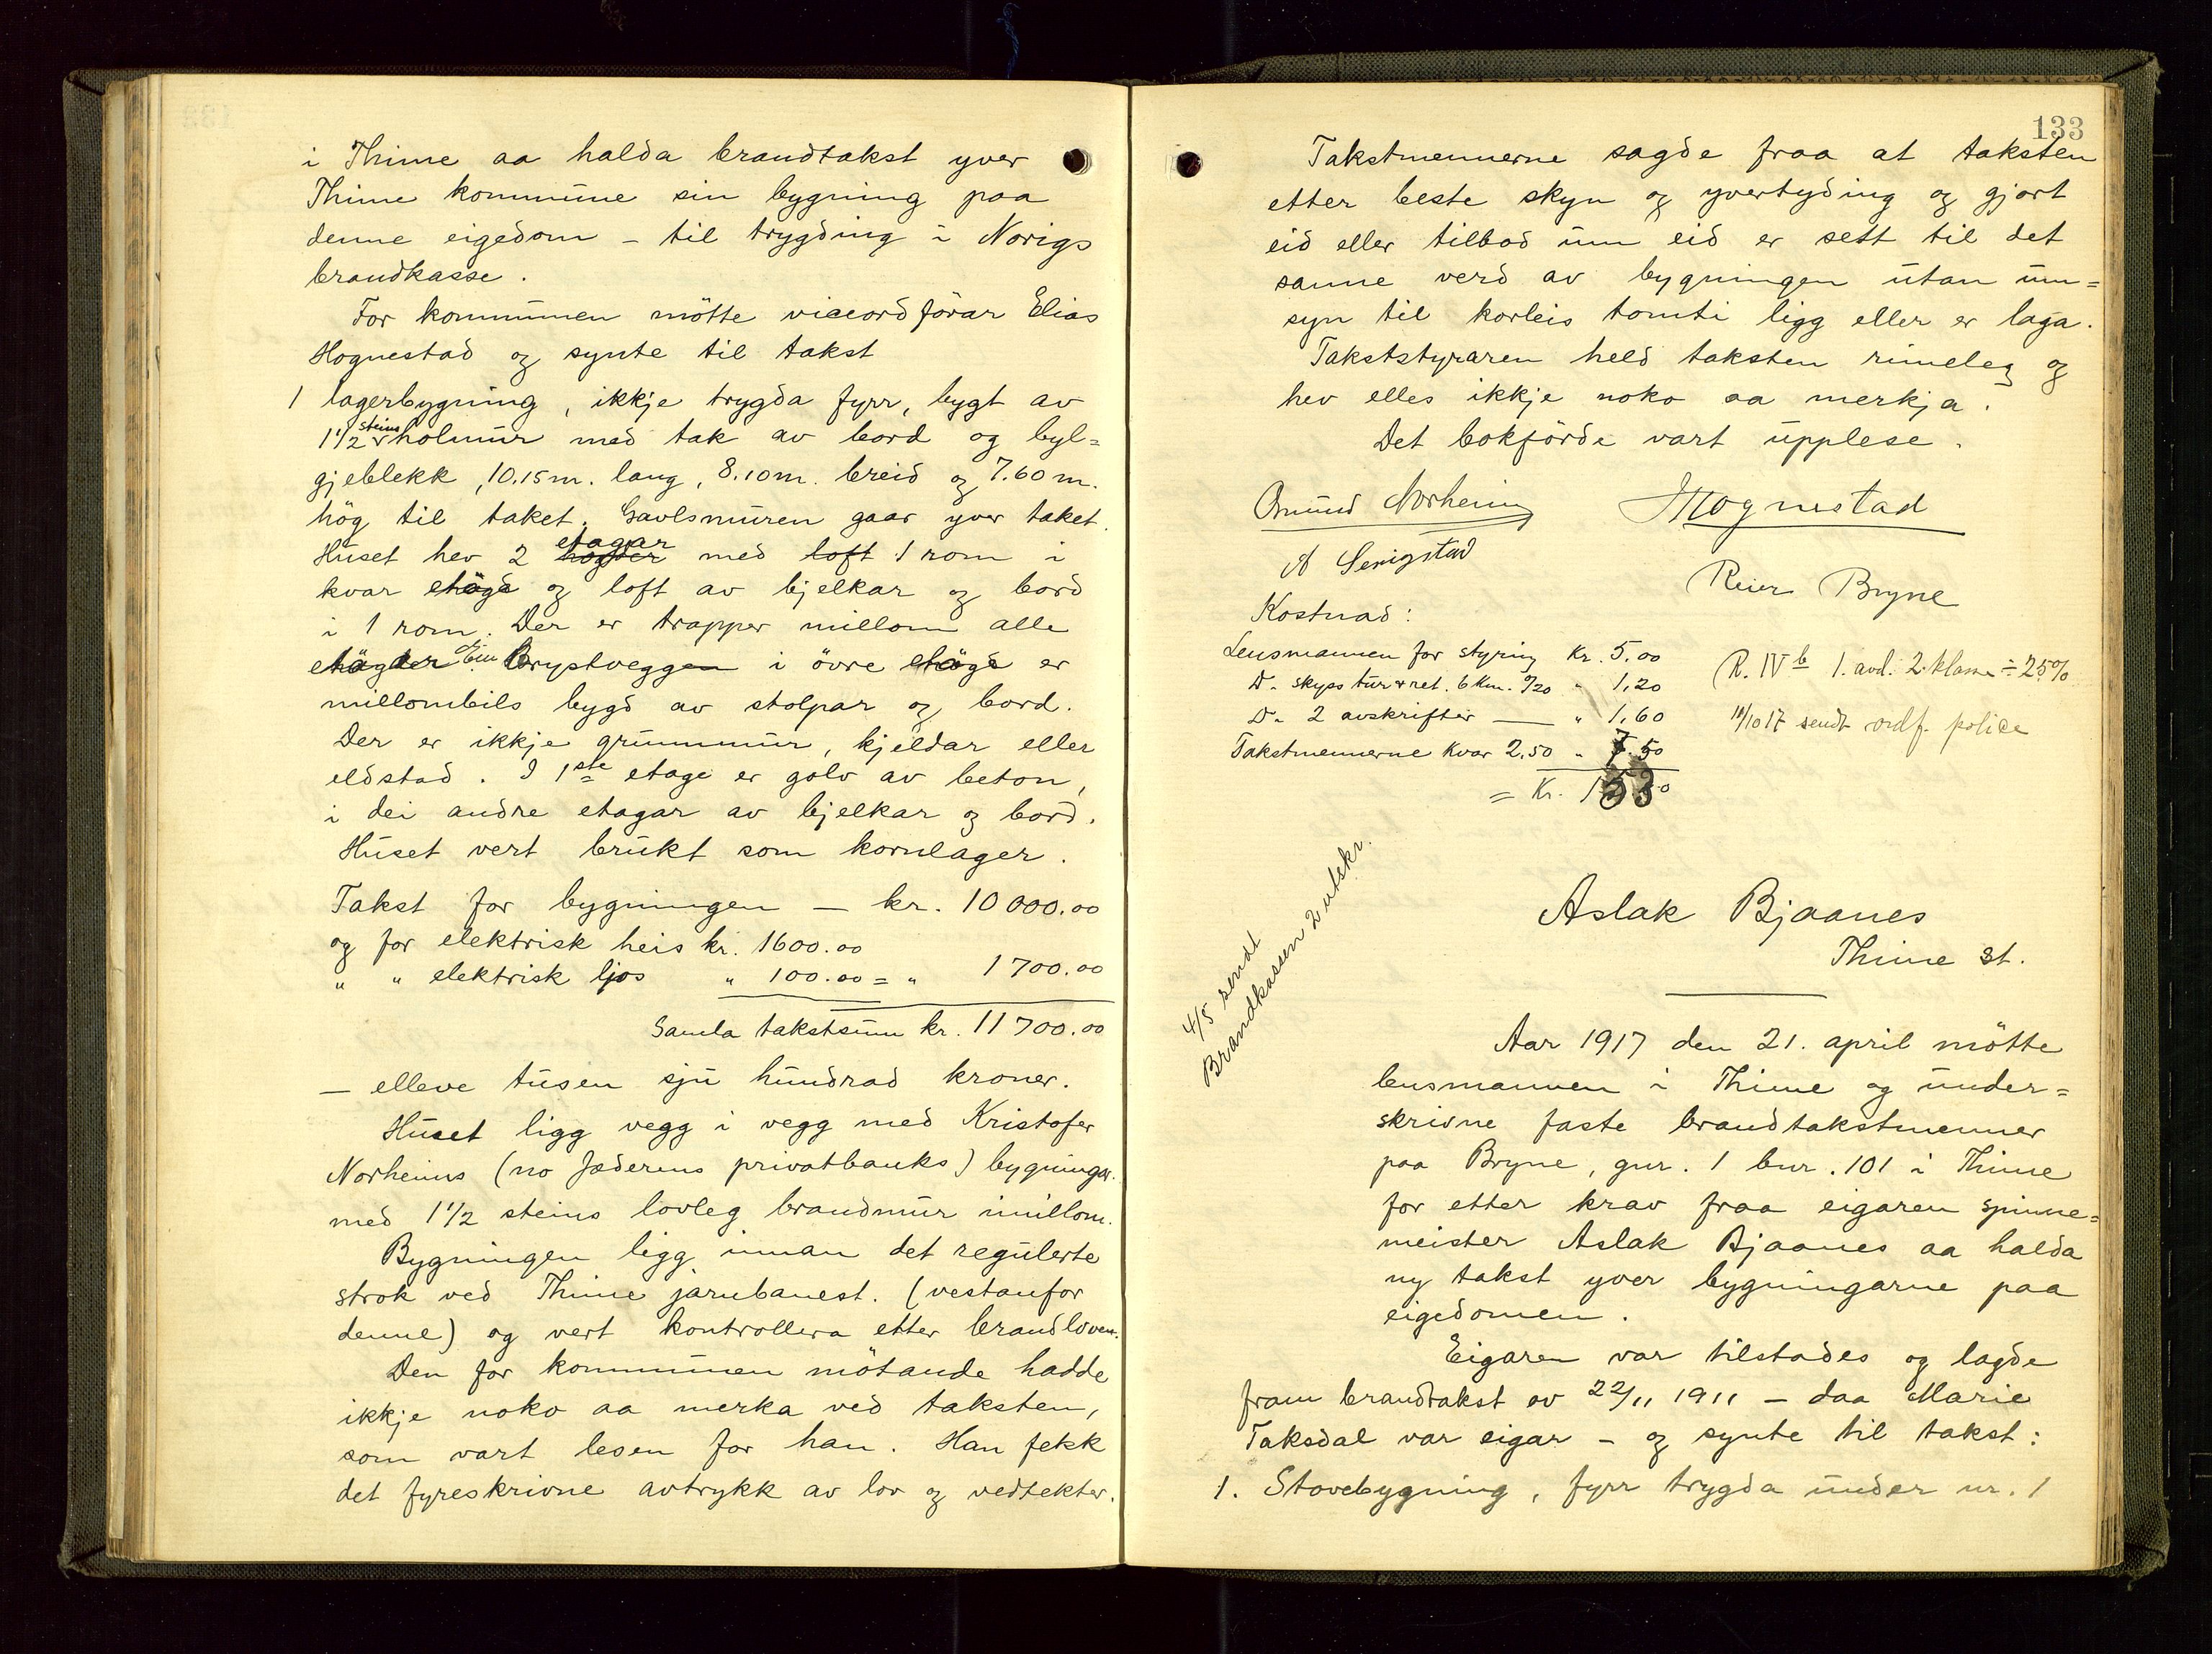 i Thime aa halda brandtakst yver
Thime kommune sin bygning paa
denne eigedom – til trygding i Norigs
brandkasse.
For kommunen mötte viceordförar Elias
Hognestad og synte til takst
1 lagerbygning, ikkje trygda fyrr, bygt av
1 1/2 steins holmur med tak av bord og byl=
gjeblekk, 10.15 m. lang, 8.10 m. breid og 7.60 m.
hög til taket. Gavlsmuren gaar yver taket.
Huset hev 2 etagar med loft 1 rom i
kvar etage og loft av bjelkar og bord
i 1 rom. Der er trapper millom alle
etagar. Ein brystvegg i övre etage er
millombils bygd av stolpar og bord.
Der er ikkje grunnmur, kjeldar eller
eldstad. I 1ste etage er golv av beton,
i dei andre etagar av bjelkar og bord.
Huset vert brukt som kornlager.
Takst for bygningen — kr. 10 000.00
og for elektrisk heis kr. 1600.00
" " elektrisk ljos " 100.00 = " 1 700.00
Samla takstsum kr. 11 700.00
— elleve tusen sju hundrad kroner.
Huset ligg vegg i vegg med Kristofer
Norheims (no Jæderens privatbanks) bygningar.
med 1 1/2 steins lovleg brandmur imillom.
Bygningen ligg innan det regulerte
strok ved Thime jarnbanest. (vestanfor
denne) og vert kontrollera etter brandloven.
Den for kommunen mötande hadde
ikkje noko aa merka ved taksten,
som vart lesen for han. Han fekk
det fyreskrivne avtrykk av lov og vedtekter.
133
Takstmennerne sagde fraa at taksten
etter beste skyn og yvertyding og gjort
eid eller tilbod um eid er sett til det
sanne verd av bygningen utan um=
syn til korleis tomti ligg eller er laga.
Takststyraren held taksten rimeleg og
hev elles ikkje noko aa merkja.
Det bokförde vart upplese.
Omund Norheim Hognestad
A Serigstad
Reier Bryne
Kostnad:
Lensmannen for styring Kr. 5,00
D. skyss tur & ret. 6 Km. 0/20 " 1,20
D. 2 avskrifter — " 1,60
Takstmennerne kvar 2,50 " 7.50
= Kr. 15.30
R. IV b 1. avd. 2. klasse ÷ 25%
18/10 17 sendt ordf. police
4/5 sendt
Brandkassen 2 utskr.
Aslak Bjaanes
Thime st.
Aar 1917 den 21. april mötte
lensmannen i Thime og under=
skrivne faste brandtakstmenner
paa Bryne, gnr. 1 bnr. 101 i Thime
for etter krav fraa eigaren spinne=
meister Aslak Bjaanes aa halda
ny takst yver bygningarne paa
eigedomen.
Eigaren var tilstades og lagde
fram brandtakst av 22/11 1911 – daa Marie
Taksdal var eigar – og synte til takst:
1. Stovebygning, fyrr trygda under nr. 1